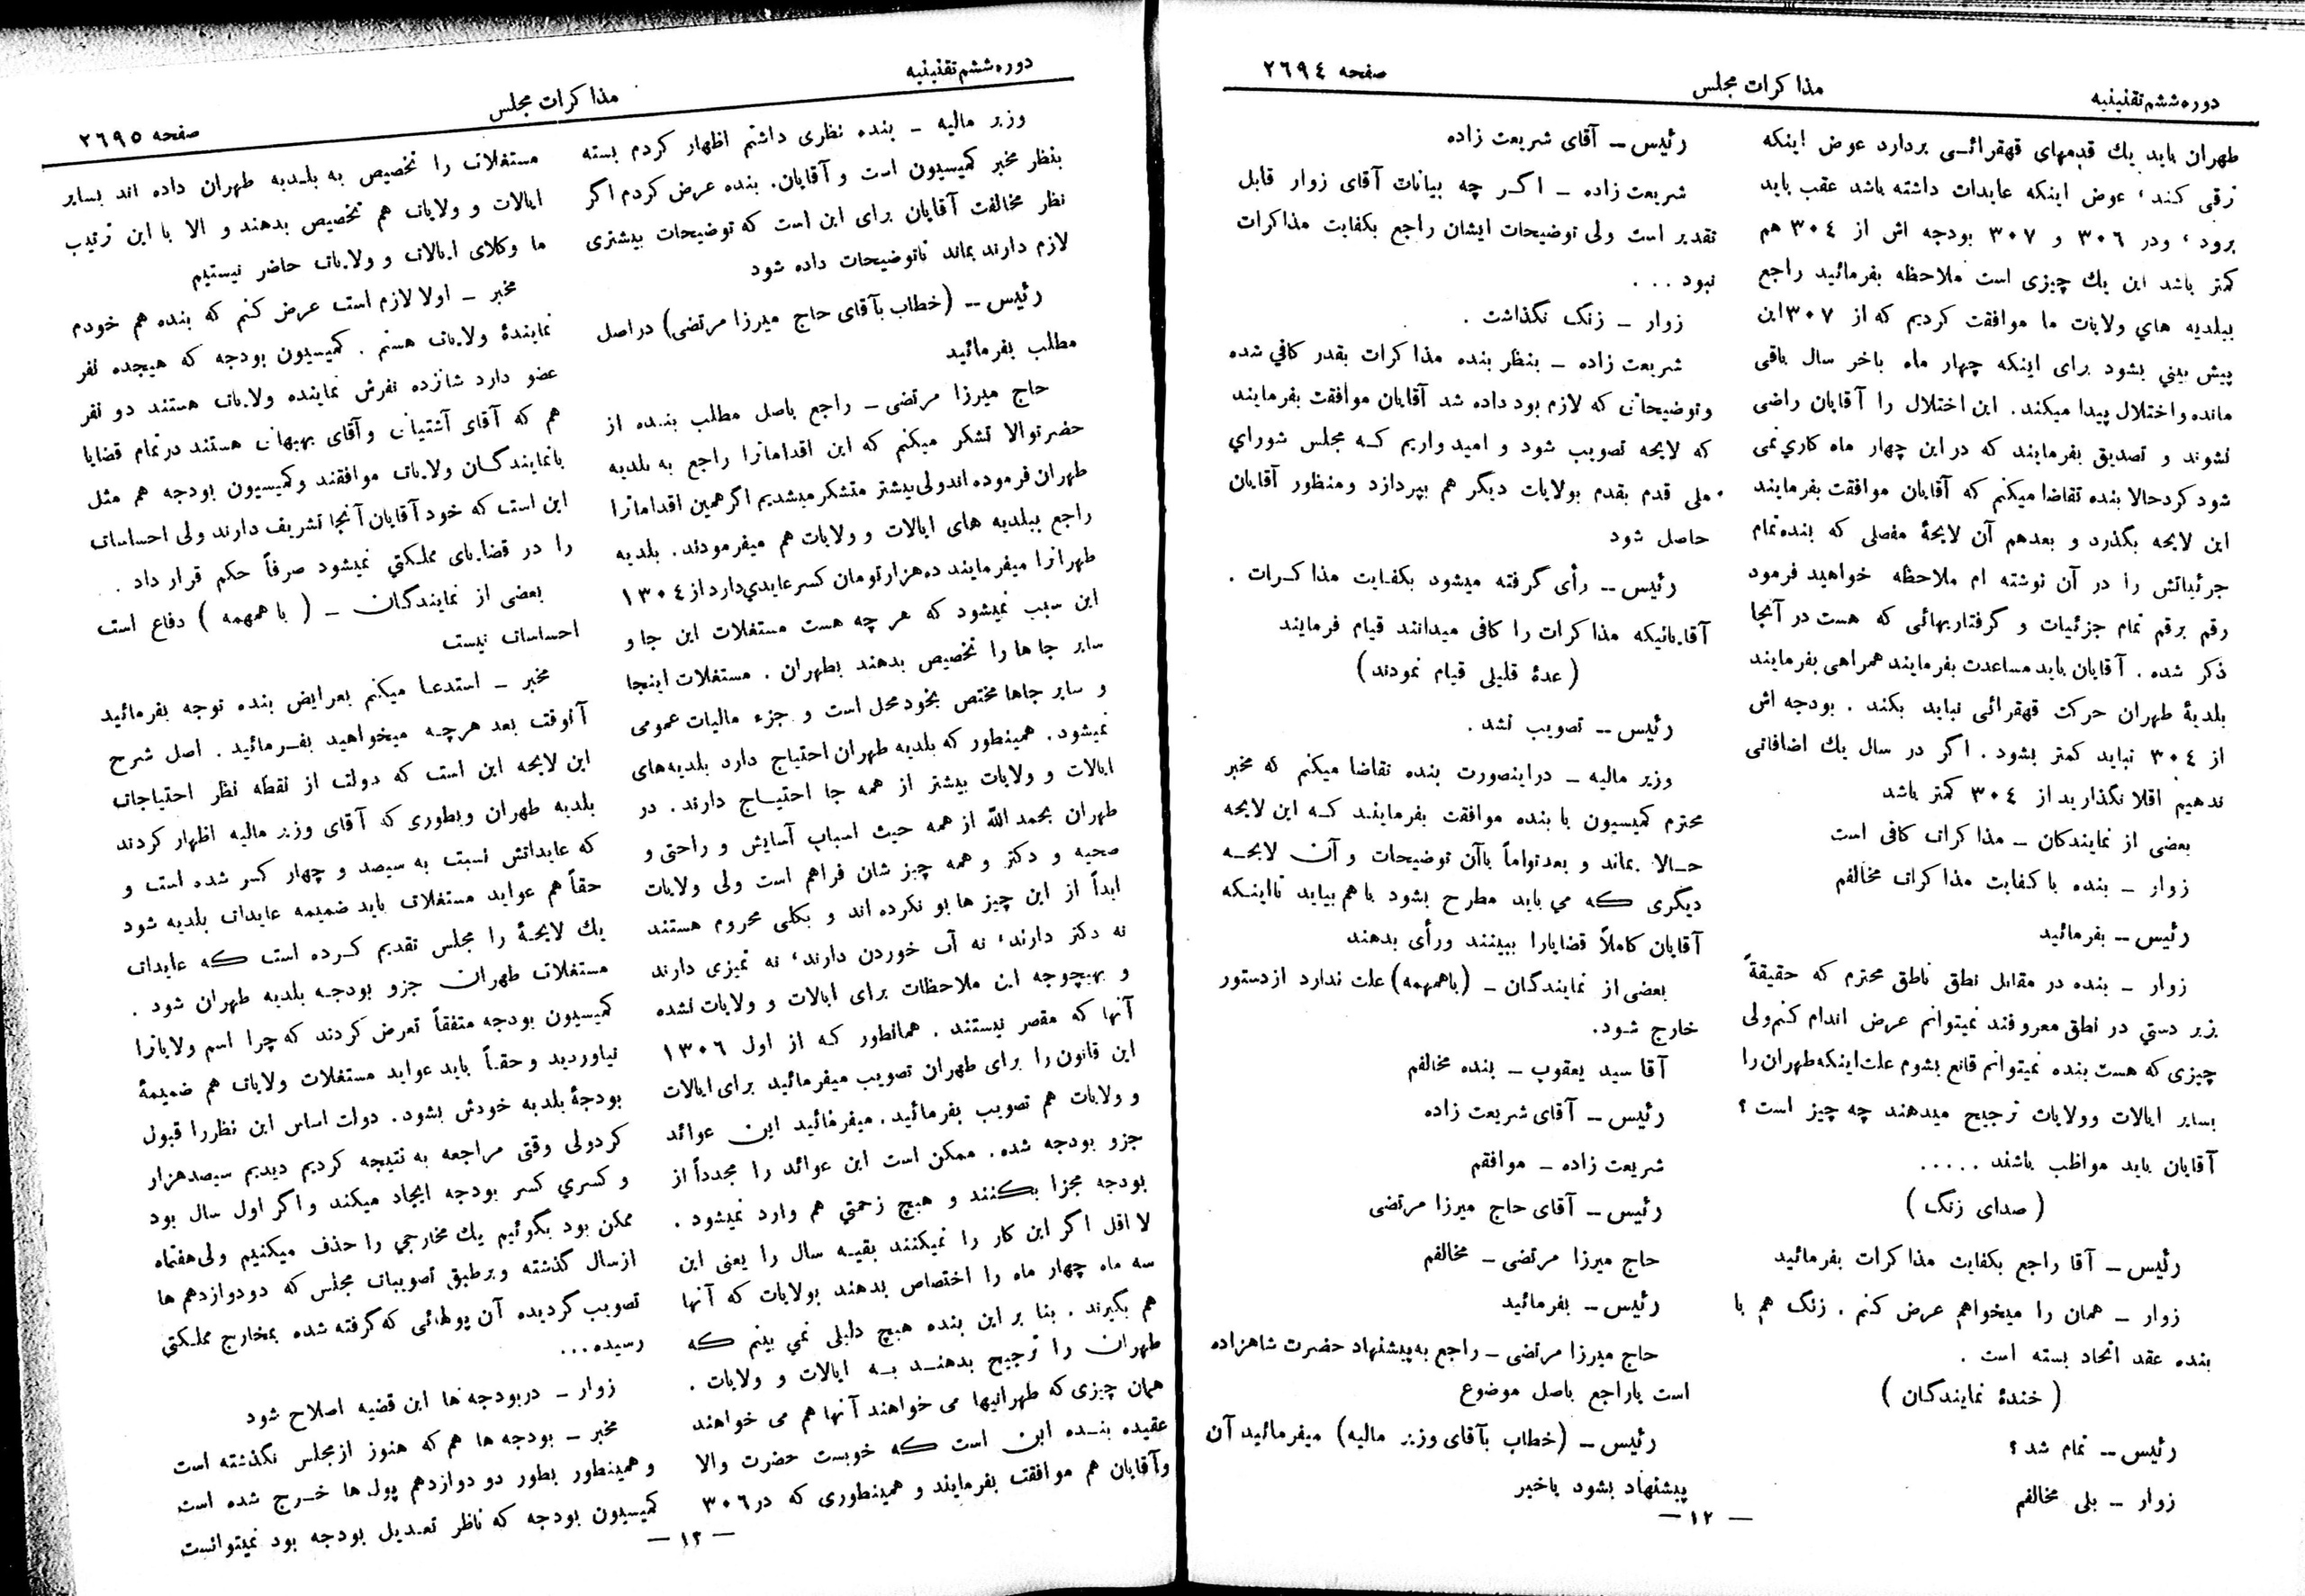 دوره ششم تقنینیه
مذاکرات مجلس
صفحه ۲٦۹٤
طهران باید یك قدمهای قهقرائی بردارد عوض اینکه
ترقی کند، عوض اینکه عایدات داشته باشد عقب باید
برود، ودر ۳۰٦ و ۳۰۷ بودجه اش از ۳۰٤ هم
کمتر باشد این یك چیزی است ملاحظه بفرمائید راجع
ببلدیه های ولایات ما موافقت کردیم که از ۳۰۷ این
پیش بینی بشود برای اینکه چهار ماه باخر سال باقی
مانده و اختلال پیدا میکند. این اختلال را آقایان راضی
نشوند و تصدیق بفرمایند که در این چهار ماه کاری نمی
شود کرد حالا بنده تقاضا میکنم که آقایان موافقت بفرمایند
این لایحه بگذرد و بعدهم آن لایحهٔ مفصلی که بنده تمام
جزئیاتش را در آن نوشته ام ملاحظه خواهید فرمود
رقم برقم تمام جزئیات و گرفتاریهائی که هست در آنجا
ذکر شده. آقایان باید مساعدت بفرمایند همراهی بفرمایند
بلدیهٔ طهران حرکت قهقرائی نباید بکند. بودجه اش
از ۳۰٤ نباید کمتر بشود. اگر در سال یك اضافاتی
ندهیم اقلا نگذارید از ۳۰٤ کمتر باشد
بعضی از نمایندگان ـ مذاکرات کافی است
زوار ـ بنده با کفایت مذاکرات مخالفم
رئیس ـ بفرمائید
زوار ـ بنده در مقابل نطق ناطق محترم که حقیقةً
زبر دستی در نطق معروفند نمیتوانم عرض اندام کنم ولی
چیزی که هست بنده نمیتوانم قانع بشوم علت اینکه طهران را
بسایر ایالات وولایات ترجیح میدهند چه چیز است؟
آقایان باید مواظب باشند .....
(صدای زنگ)
رئیس ـ آقا راجع بکفایت مذاکرات بفرمائید
زوار ـ همان را میخواهم عرض کنم. زنگ هم با
بنده عقد اتحاد بسته است.
(خندهٔ نمایندگان)
رئیس ـ تمام شد؟
زوار ـ بلی مخالفم
رئیس ـ آقای شریعت زاده
شریعت زاده ـ اگر چه بیانات آقای زوار قابل
تقدیر است ولی توضیحات ایشان راجع بکفایت مذاکرات
نبود ...
زوار ـ زنگ نگذاشت.
شریعت زاده ـ بنظر بنده مذاکرات بقدر کافی شده
وتوضیحاتی که لازم بود داده شد آقایان موافقت بفرمایند
که لایحه تصویب شود و امیدواریم که مجلس شورای
ملی قدم بقدم بولایات دیگر هم بپردازد ومنظور آقایان
حاصل شود
رئیس ـ رأی گرفته میشود بکفایت مذاکرات.
آقایانیکه مذاکرات را کافی میدانند قیام فرمایند
(عدهٔ قلیلی قیام نمودند)
رئیس ـ تصویب نشد.
وزیر مالیه ـ دراینصورت بنده تقاضا میکنم که مخبر
محترم کمیسیون با بنده موافقت بفرمایند که این لایحه
حالا بماند و بعد تواماً باآن توضیحات و آن لایحه
دیگری که می باید مطرح بشود با هم بیاید تااینکه
آقایان کاملاً قضایارا ببینند ورأی بدهند
بعضی از نمایندگان ـ (باهمهمه) علت ندارد از دستور
خارج شود.
آقا سید یعقوب ـ بنده مخالفم
رئیس ـ آقای شریعت زاده
شریعت زاده ـ موافقم
رئیس ـ آقای حاج میرزا مرتضی
حاج میرزا مرتضی ـ مخالفم
رئیس ـ بفرمائید
حاج میرزا مرتضی ـ راجع به پیشنهاد حضرت شاهزاده
است یاراجع باصل موضوع
رئیس ـ (خطاب بآقای وزیر مالیه) میفرمائید آن
پیشنهاد بشود یاخیر
ـ ۱۲ ـ
دوره ششم تقنینیه
مذاکرات مجلس
صفحه ۲٦۹٥
وزیر مالیه ـ بنده نظری داشتم اظهار کردم بسته
بنظر مخبر کمیسیون است و آقایان. بنده عرض کردم اگر
نظر مخالفت آقایان برای این است که توضیحات بیشتری
لازم دارند بماند تاتوضیحات داده شود
رئیس ـ (خطاب بآقای حاج میرزا مرتضی) در اصل
مطلب بفرمائید
حاج میرزا مرتضی ـ راجع باصل مطلب بنده از
حضرتوالا تشکر میکنم که این اقداماترا راجع به بلدیه
طهران فرموده اند ولی بیشتر متشکر میشدیم اگر همین اقداماترا
راجع ببلدیه های ایالات و ولایات هم میفرمودند. بلدیه
طهرانرا میفرمایند ده هزار تومان کسر عایدی دارد از ۱۳۰٤
این سبب نمیشود که هر چه هست مستغلات این جا و
سایر جاها را تخصیص بدهند بطهران. مستغلات اینجا
و سایر جاها مختص بخود محل است و جزء مالیات عمومی
نمیشود. همینطور که بلدیه طهران احتیاج دارد بلدیه های
ایالات و ولایات بیشتر از همه جا احتیاج دارند. در
طهران بحمد الله از همه حیث اسباب آسایش و راحتی و
صحیه و دکتر و همه چیز شان فراهم است ولی ولایات
ابداً از این چیز ها بو نکرده اند و بکلی محروم هستند
نه دکتر دارند، نه آب خوردن دارند، نه تمیزی دارند
و بهیچوجه این ملاحظات برای ایالات و ولایات نشده
آنها که مقصر نیستند. همانطور که از اول ۱۳۰٦
این قانون را برای طهران تصویب میفرمائید برای ایالات
و ولایات هم تصویب بفرمائید. میفرمائید این عوائد
جزو بودجه شده. ممکن است این عوائد را مجدداً از
بودجه مجزا بکنند و هیچ زحمتی هم وارد نمیشود.
لا اقل اگر این کار را نمیکنند بقیه سال را یعنی این
سه ماه چهار ماه را اختصاص بدهند بولایات که آنها
هم بگیرند. بنا بر این بنده هیچ دلیلی نمی بینم که
طهران را ترجیح بدهند به ایالات و ولایات.
همان چیزی که طهرانیها می خواهند آنها هم می خواهند
عقیده بنده این است که خوبست حضرت والا
وآقایان هم موافقت بفرمایند و همینطوری که در ۳۰٦
مستغلات را تخصیص به بلدیه طهران داده اند بسایر
ایالات و ولایات هم تخصیص بدهند و الا با این ترتیب
ما وکلای ایالات و ولایات حاضر نیستیم
مخبر ـ اولا لازم است عرض کنم که بنده هم خودم
نمایندهٔ ولایات هستم. کمیسیون بودجه که هیجده نفر
عضو دارد شانزده نفرش نماینده ولایات هستند دو نفر
هم که آقای آشتیانی و آقای بهبهانی هستند در تمام قضایا
بانمایندگان ولایات موافقند وکمیسیون بودجه هم مثل
این است که خود آقایان آنجا تشریف دارند ولی احساسات
را در قضایای مملکتی نمیشود صرفاً حکم قرار داد.
بعضی از نمایندگان ـ (با همهمه) دفاع است
احساسات نیست
مخبر ـ استدعا میکنم بعرایض بنده توجه بفرمائید
آنوقت بعد هرچه میخواهید بفرمائید. اصل شرح
این لایحه این است که دولت از نقطه نظر احتیاجات
بلدیه طهران وبطوری که آقای وزیر مالیه اظهار کردند
که عایداتش نسبت به سیصد و چهار کسر شده است و
حقاً هم عواید مستغلات باید ضمیمه عایدات بلدیه شود
یك لایحهٔ را مجلس تقدیم کرده است که عایدات
مستغلات طهران جزو بودجه بلدیه طهران شود.
کمیسیون بودجه متفقاً تعرض کردند که چرا اسم ولایاترا
نیاوردید وحقاً باید عواید مستغلات ولایات هم ضمیمهٔ
بودجهٔ بلدیه خودش بشود. دولت اساس این نظررا قبول
کردولی وقتی مراجعه به نتیجه کردیم دیدیم سیصدهزار
و کسری کسر بودجه ایجاد میکند و اگر اول سال بود
ممکن بود بگوئیم یك مخارجی را حذف میکنیم ولی هفتماه
ازسال گذشته وبرطبق تصویبات مجلس که دودوازدهم ها
تصویب گردیده آن پولهائی که گرفته شده بمخارج مملکتی
رسیده...
زوار ـ دربودجه ها این قضیه اصلاح شود
مخبر ـ بودجه ها هم که هنوز ازمجلس نگذشته است
وهمینطور بطور دو دوازدهم پول ها خرج شده است
کمیسیون بودجه که ناظر تعدیل بودجه بود نمیتوانست
ـ ۱۳ ـ